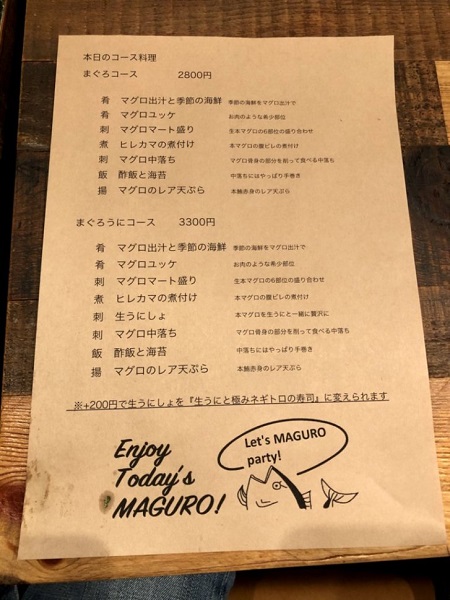 本日のコース料理
まぐろコース 2800円
肴 マグロ出汁と季節の海鮮 季節の海鮮をマグロ出汁で
肴 マグロユッケ お肉のような希少部位
刺 マグロマート盛り 生本マグロの6部位の盛り合わせ
煮 ヒレカマの煮付け 本マグロの腹ビレの煮付け
刺 マグロ中落ち マグロ骨身の部分を削って食べる中落ち
飯 酢飯と海苔 中落ちにはやっぱり手巻き
揚 マグロのレア天ぷら 本鮪赤身のレア天ぷら
まぐろうにコース 3300円
肴 マグロ出汁と季節の海鮮 季節の海鮮をマグロ出汁で
肴 マグロユッケ お肉のような希少部位
刺 マグロマート盛り 生本マグロの6部位の盛り合わせ
煮 ヒレカマの煮付け 本マグロの腹ビレの煮付け
刺 生うにしょ 本マグロを生うにと一緒に贅沢に
刺 マグロ中落ち マグロ骨身の部分を削って食べる中落ち
飯 酢飯と海苔 中落ちにはやっぱり手巻き
揚 マグロのレア天ぷら 本鮪赤身のレア天ぷら
※+200円で生うにしょを『生うにと極みネギトロの寿司』に変えられます
Enjoy
Today's
MAGURO!
Let's MAGURO
party!